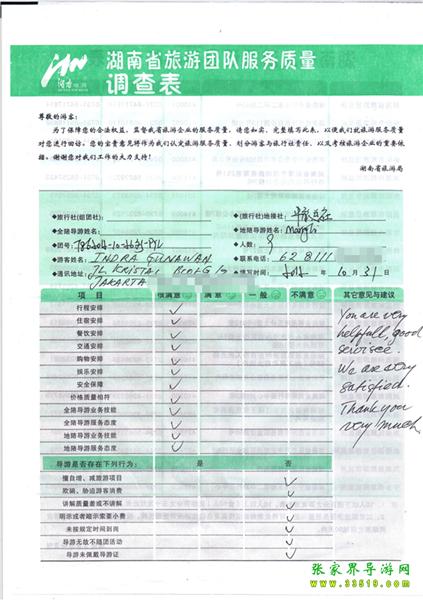 湖南省旅游团队服务质量
调查表
尊敬的游客：
为了保障您的合法权益，监督我省旅游企业的服务质量，请您如实、完整填写此表，以便我们就旅游服务质量
对您进行回访。您的宝贵意见将作为我们认定旅游服务质量、划分游客与旅行社责任，以及考核旅游企业的重要依
据。谢谢您对我们工作的大力支持！
湖南省旅游局
旅行社(组团社)：
旅行社(地接社)：
全陪导游姓名：
地陪导游姓名：
团号：
人数：
游客姓名：INDRA GUNAWAN
联系电话：628111
通讯地址：JL. KRISTAL
JAKARTA
填写时间： 年 10 月 31 日
项 目 很满意 满 意 一 般 不满意 其它意见与建议
行程安排
住宿安排
餐饮安排
交通安排
购物安排
娱乐安排
安全保障
价格质量相符
全陪导游业务技能
全陪导游服务态度
地陪导游业务技能
地陪导游服务态度
You are very
helpfull, good
servicee.
We are very
satisfied.
Thank you
very much.
导游是否存在下列行为： 是 否
擅自增、减旅游项目
欺骗、胁迫游客消费
讲解质量差或不讲解
明示或者暗示索要小费
未按规定时间到岗
导游无故不随团活动
导游未佩戴导游证
张家界导游网
www.33519.com